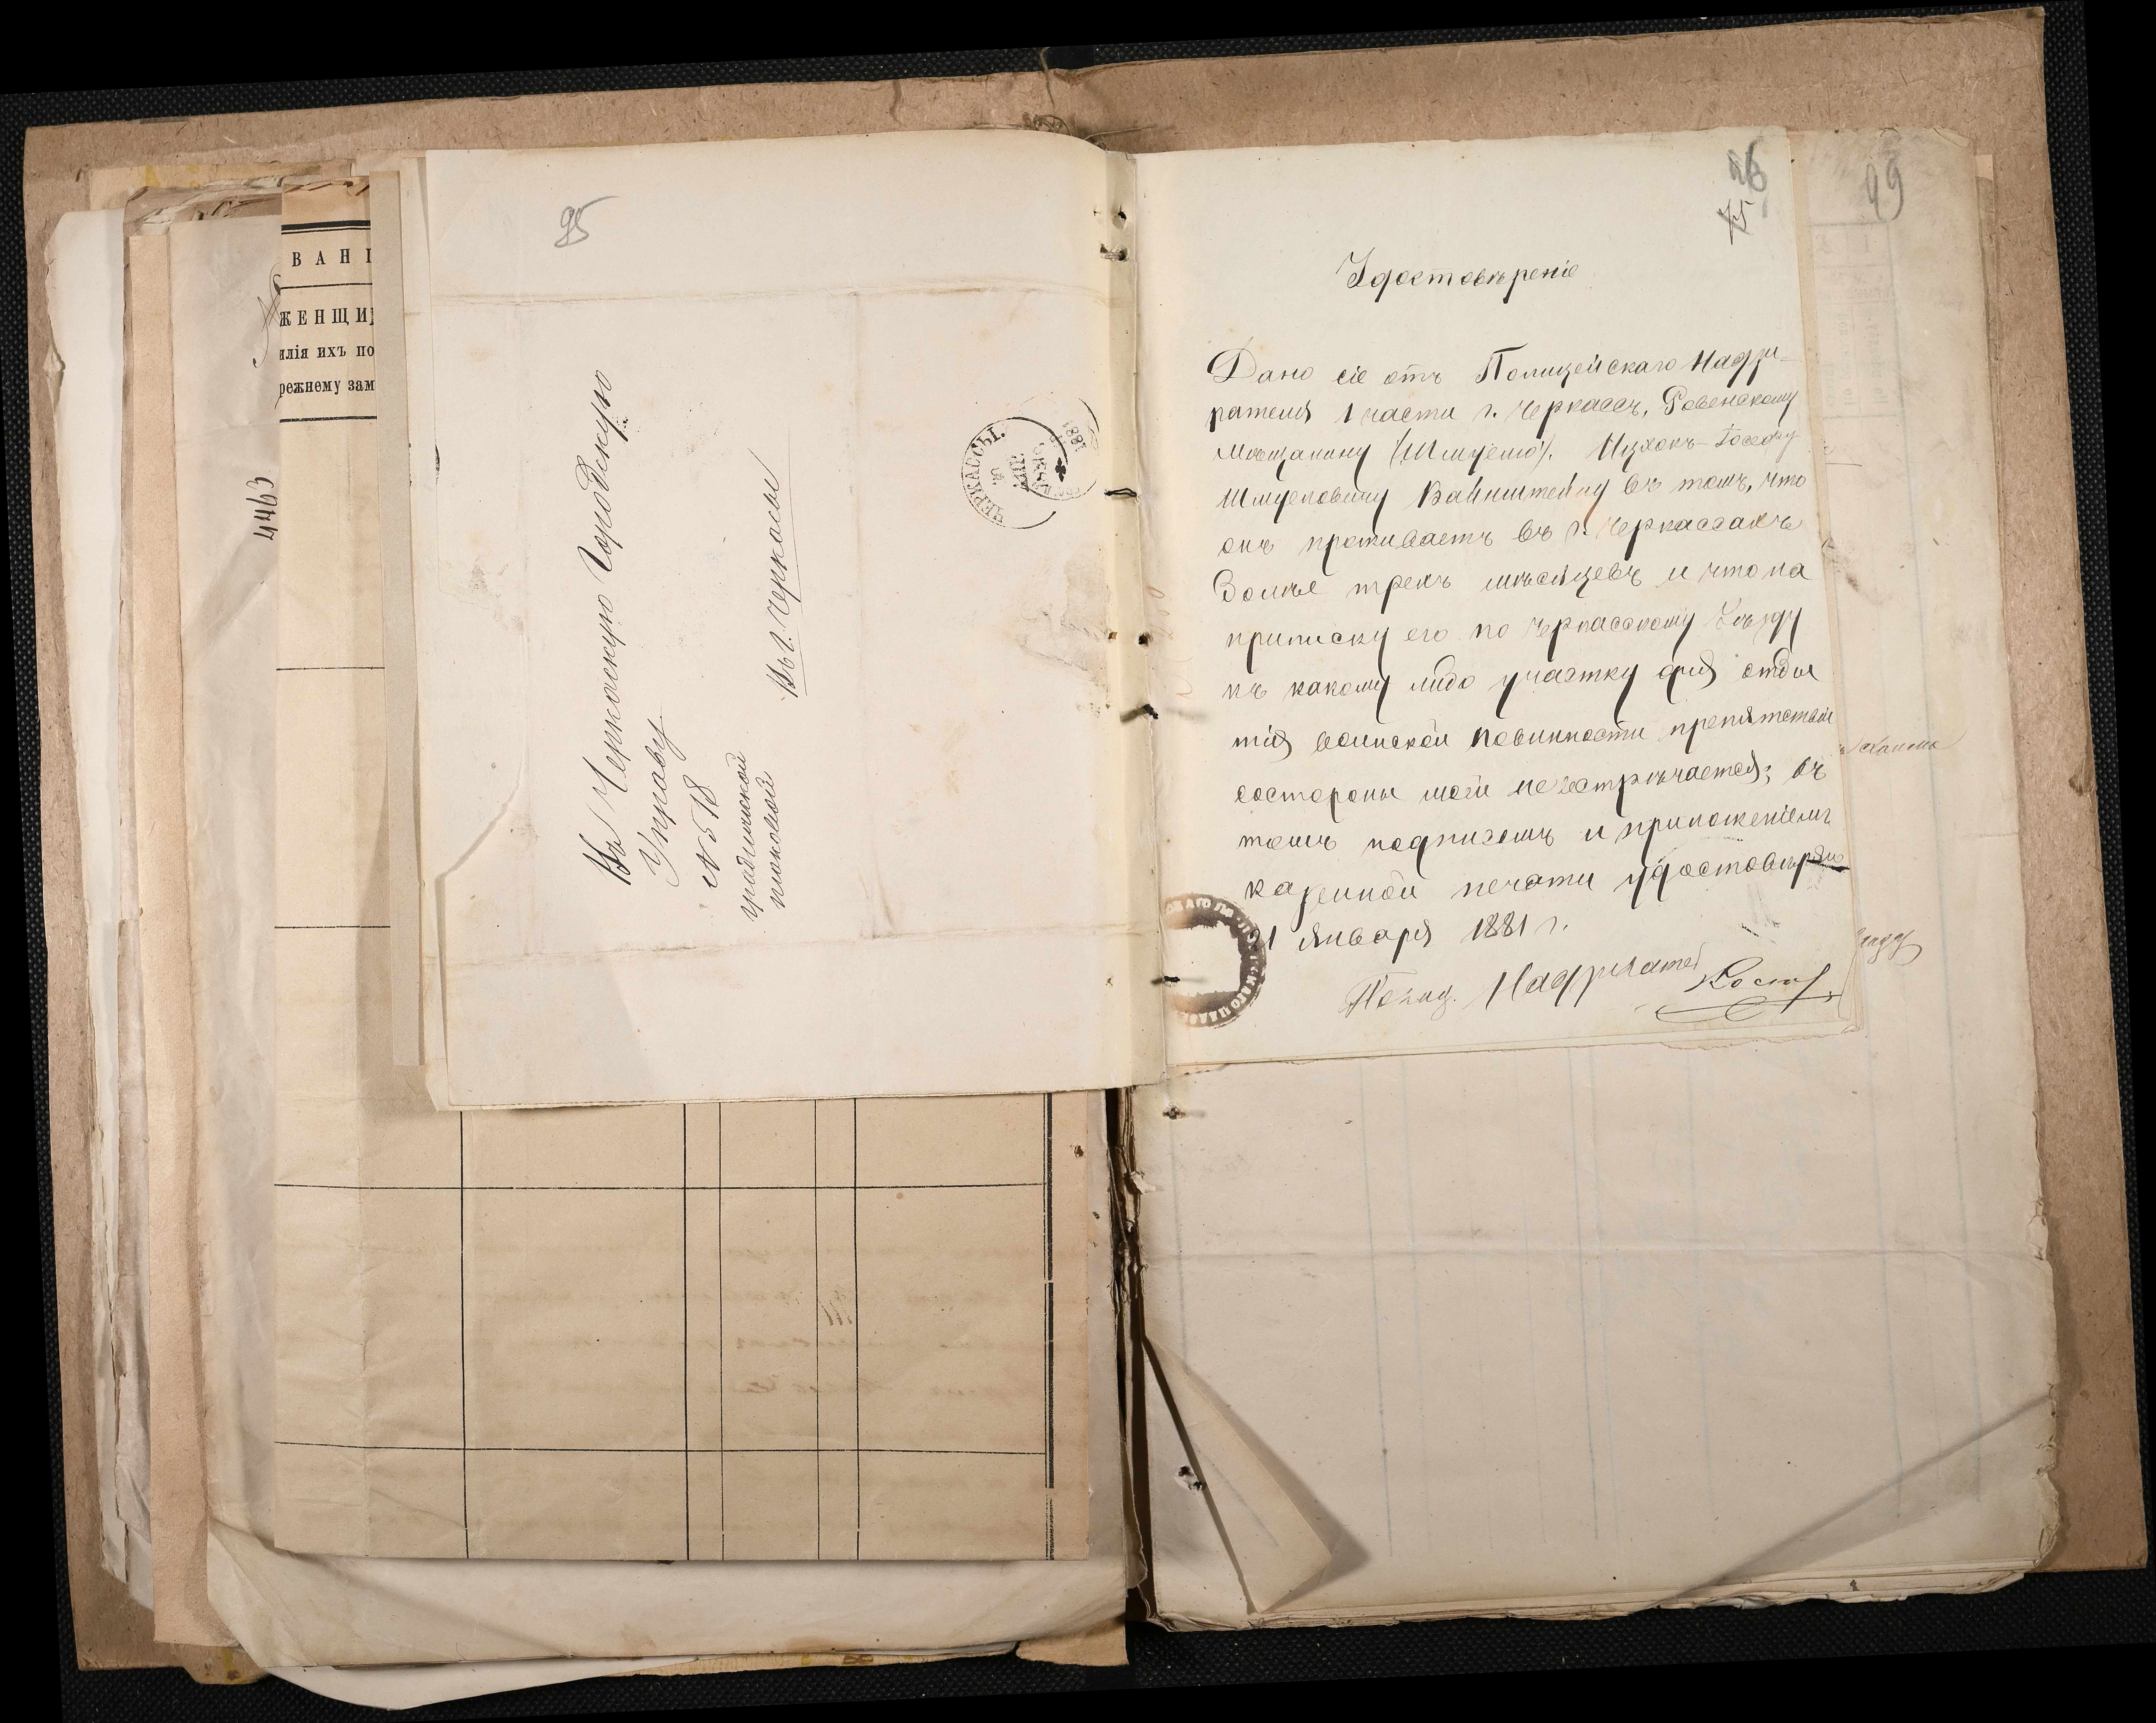 ВАНІ
ЖЕНЩИ
илія ихъ по
режнему зам
4463
95
Въ Черкаскую Городскую
Управу
№ 518
Въ г. Черкасы
ЧЕРКАССЫ.
1881
26
49
Удостовѣреніе
Дано сіе отъ Полицейскаго Надзи-
рателя 1 части г. Черкассъ, Ровенскому
Мѣщанину (Шмуелю). Ицхокъ-Іосефу
Шмуеловичу Вайнштейну въ томъ, что
онъ проживаетъ въ г. Черкассахъ
Болѣе трехъ мѣсяцевъ и что на
приписку его по Черкасскому Уѣзду
къ какому либо участку для отбы
тія воинской повинности препятствій
состороны моей не встрѣчается; въ
томъ подписомъ и приложеніемъ
казенной печати удостовѣряю
21 Января 1881 г.
Полиц. Надзиратель